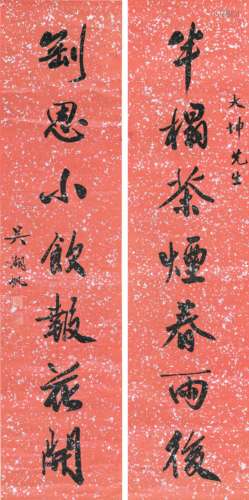 大坤先生
半榻茶煙春雨後
恩小飲報花開
吳湖帆